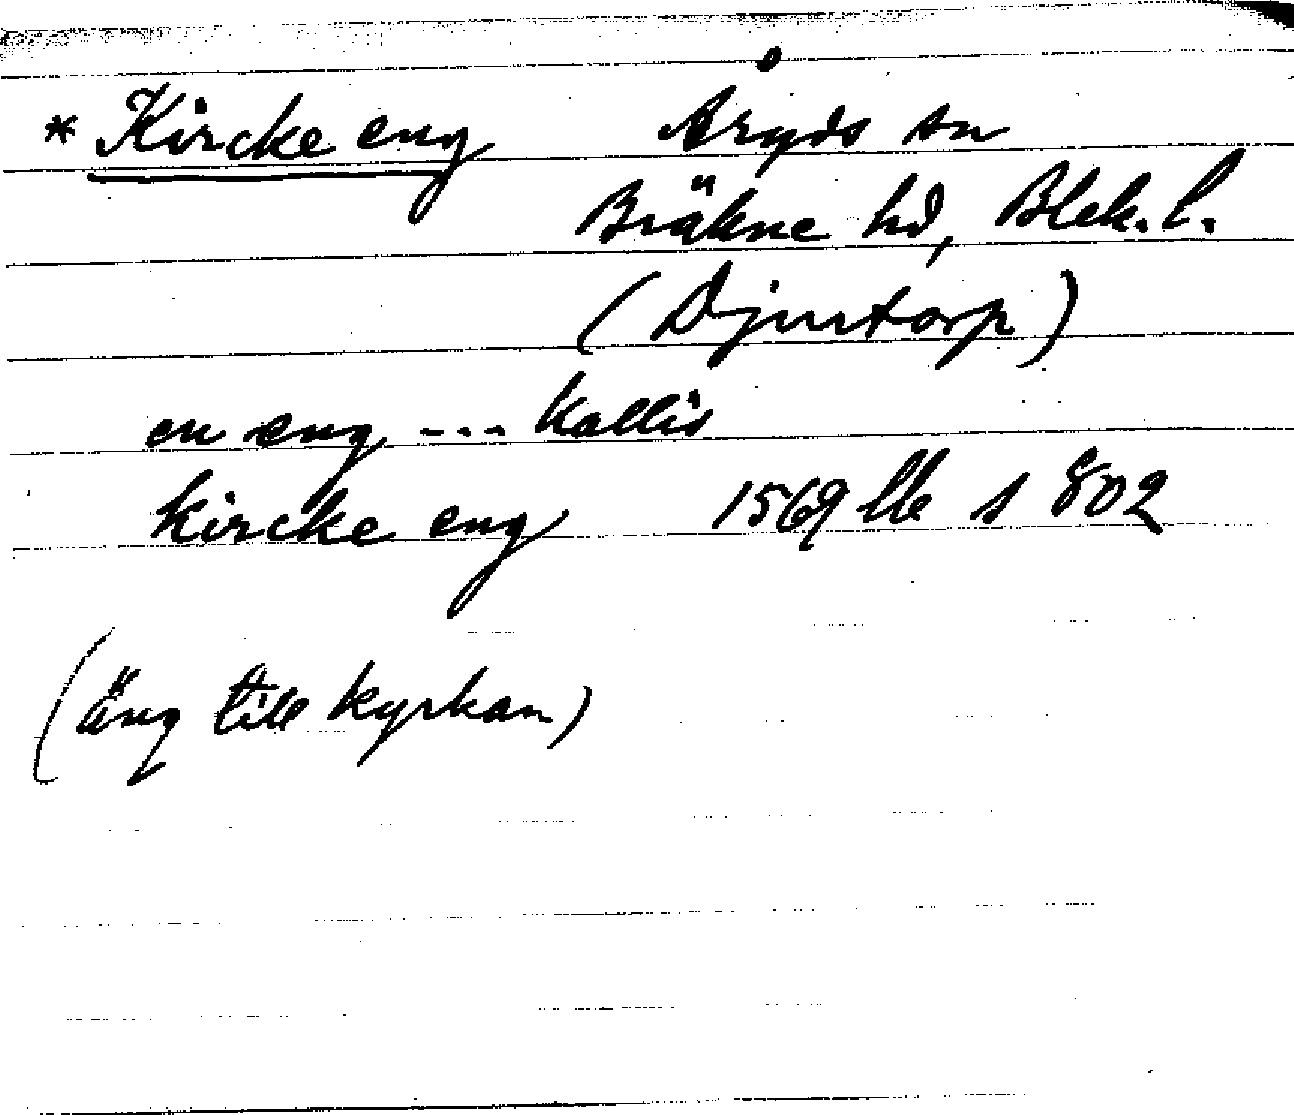 * Kircke eng Åryds sn
Bräkne hd, Blek. l.
(Djurtorp)
en eng --- Kallis
kircke eng 1569 lb s 802
(äng till kyrkan)